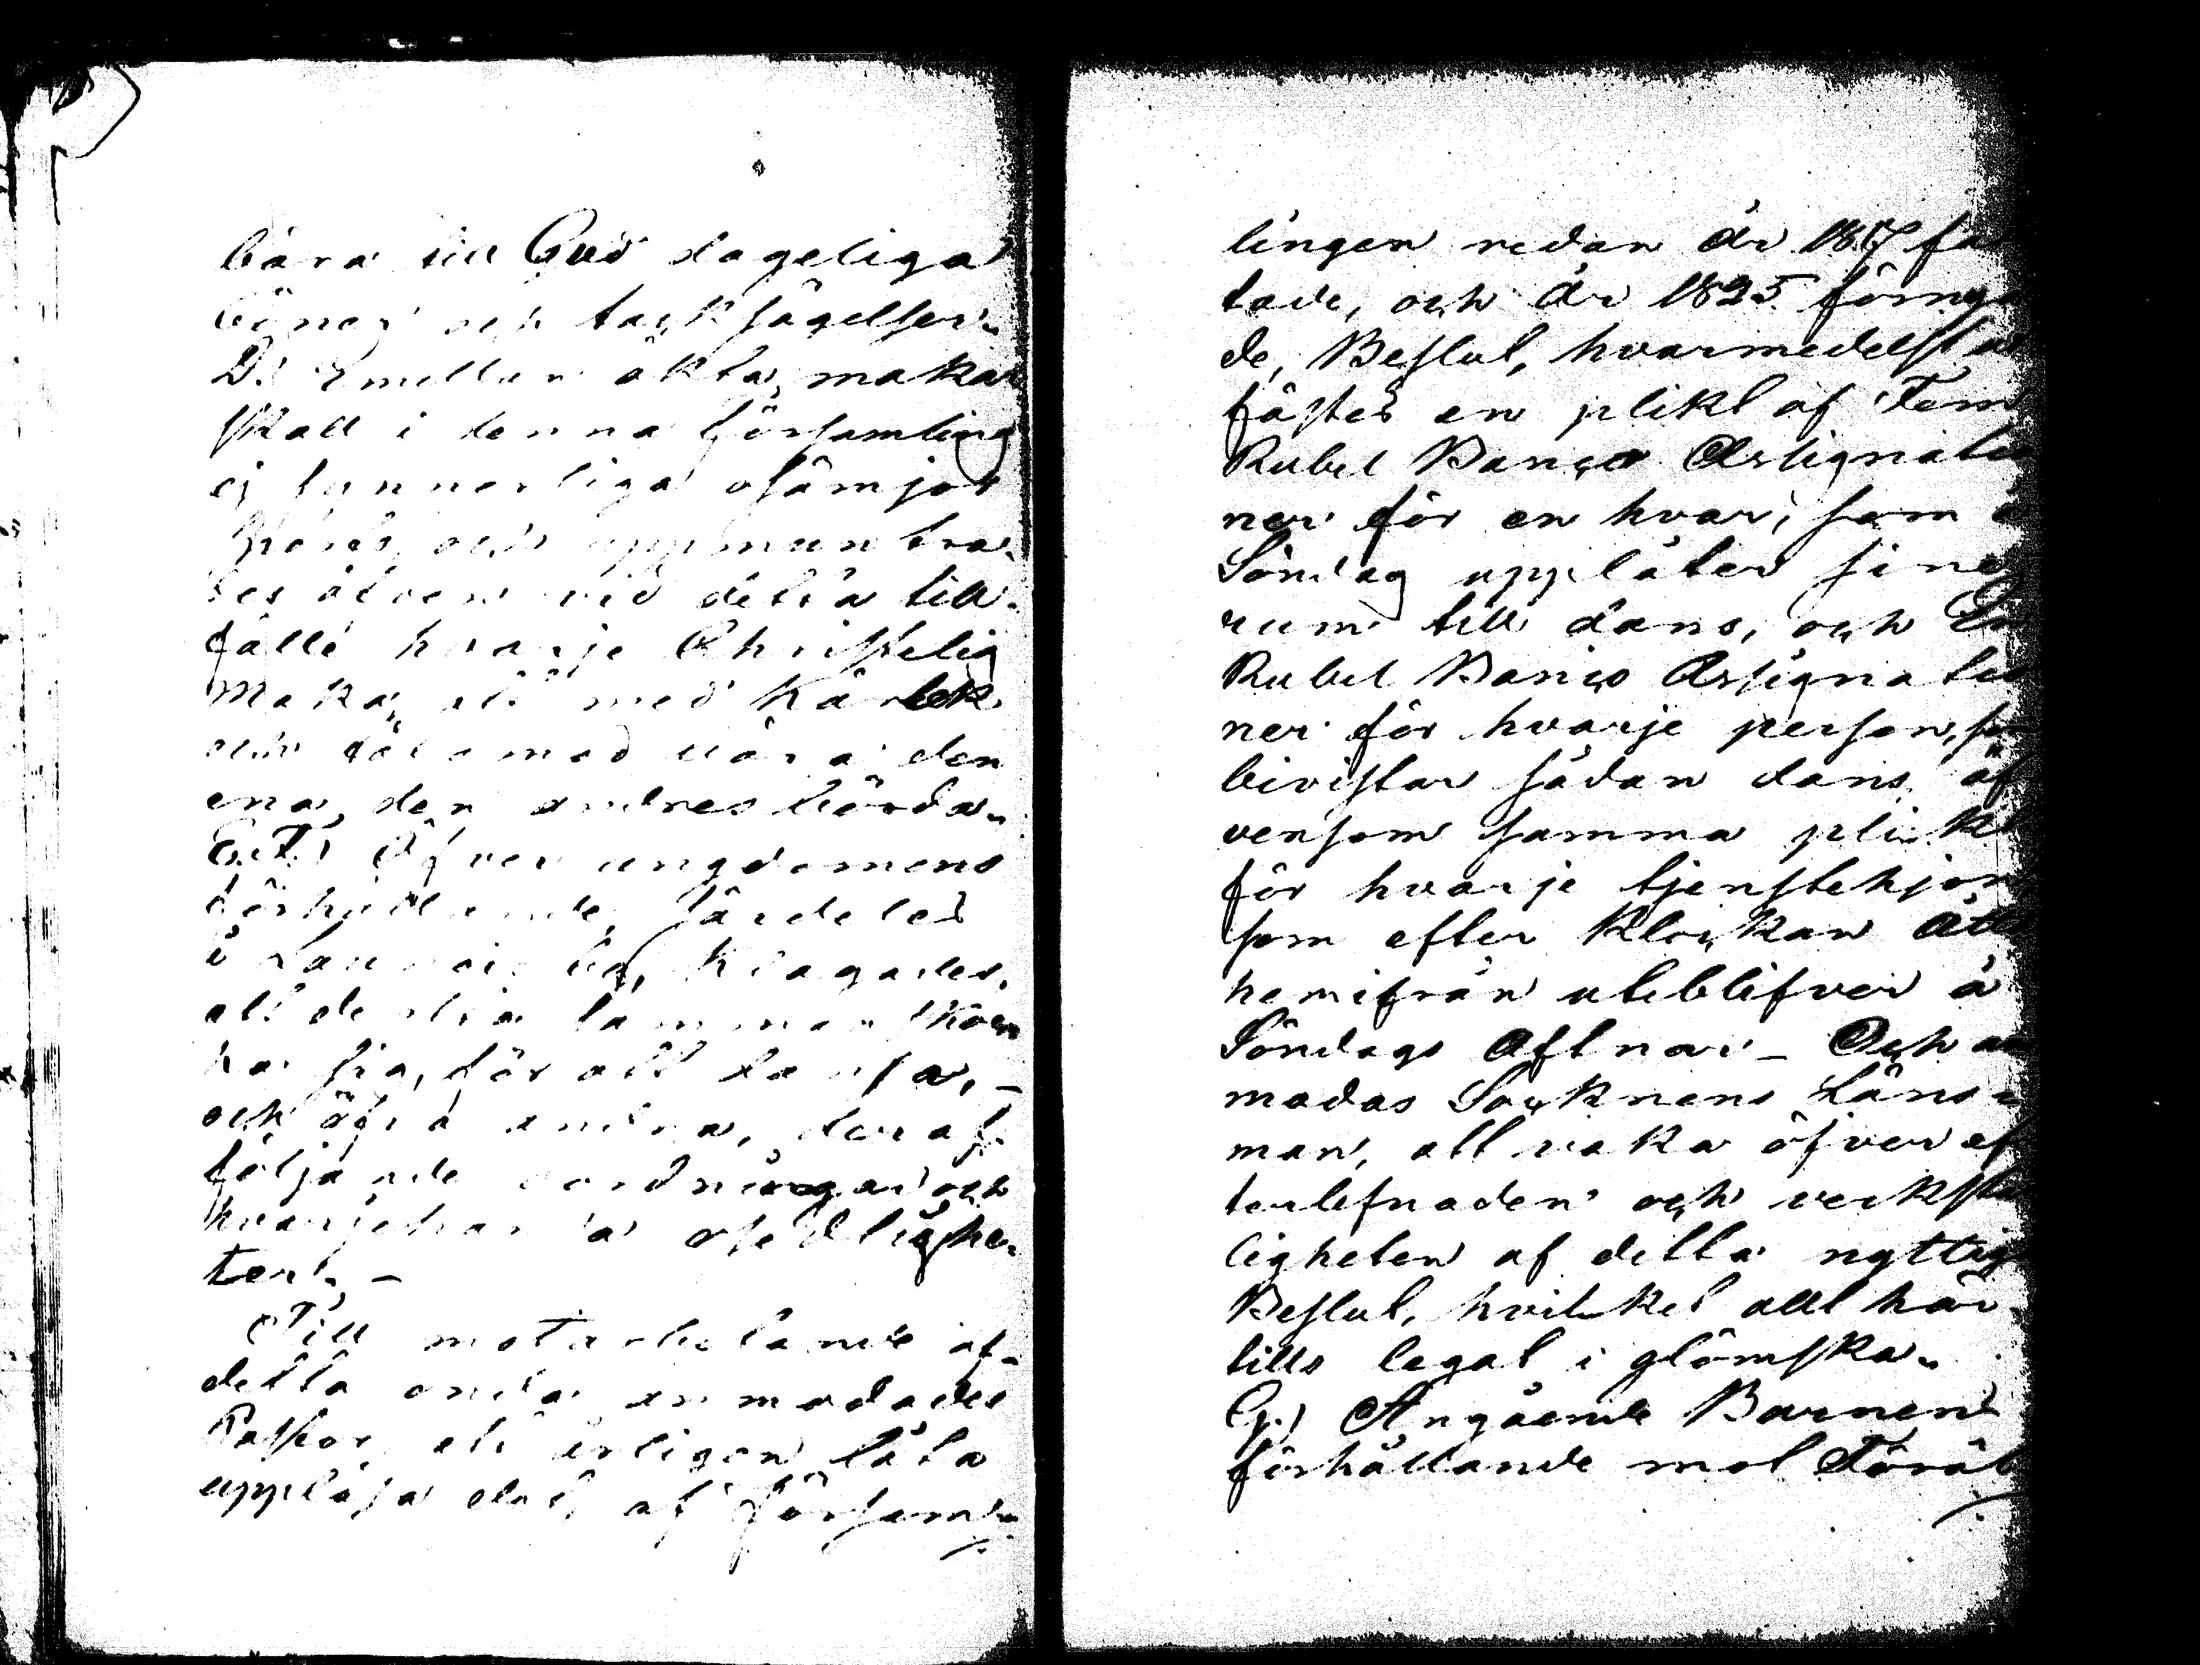 bära till Gud dageliga
böner och tacksägelser.
D.) Emellan äkta makar
skall i denna församling
ej synnerliga osämjor
spörjs, och uppmuntra-
des äfven vid detta till-
fälle hvarje Christelig
Maka, att med kärlek
och tålamod bära den
ena, den andres börda.
E.) Öfver ungdomens
förhållande, särdeles
i klagades,
att de ofta samman
ha sig, för att dansa, –
och öfva andra, deraf
följande oordningar och
hvarjehanda osedlighe-
ter. –
Till motarbetande af
detta onda anmodades
Pastor att årligen låta
uppläsa det, af Församb-
lingen redan År 1817 fat-
tade, och År 1825 förnya
de, Beslut, hvarmedelst
fästes en plikt af Fem
Rubel Banco Assignatio
ner för en hvar, som å
Söndag upplåter sine
rum till dans, och En
Rubel Banco Assignatio
ner för hvarje person, som
bivistar sådan dans, äf
vensom samma plikt
för hvarje tjenstehjon
som efter Klockan Åtta
hemifrån utebblifver å
Söndags Aftnar – Och an
modas Socknens Läns-
man, att vaka öfver ef
terlefnaden och verkstä
ligheten af detta nyttig
Beslut, hvilket allt här-
tills legat i glömska.
G.) Angående Barnens
förhållande mot Föräl